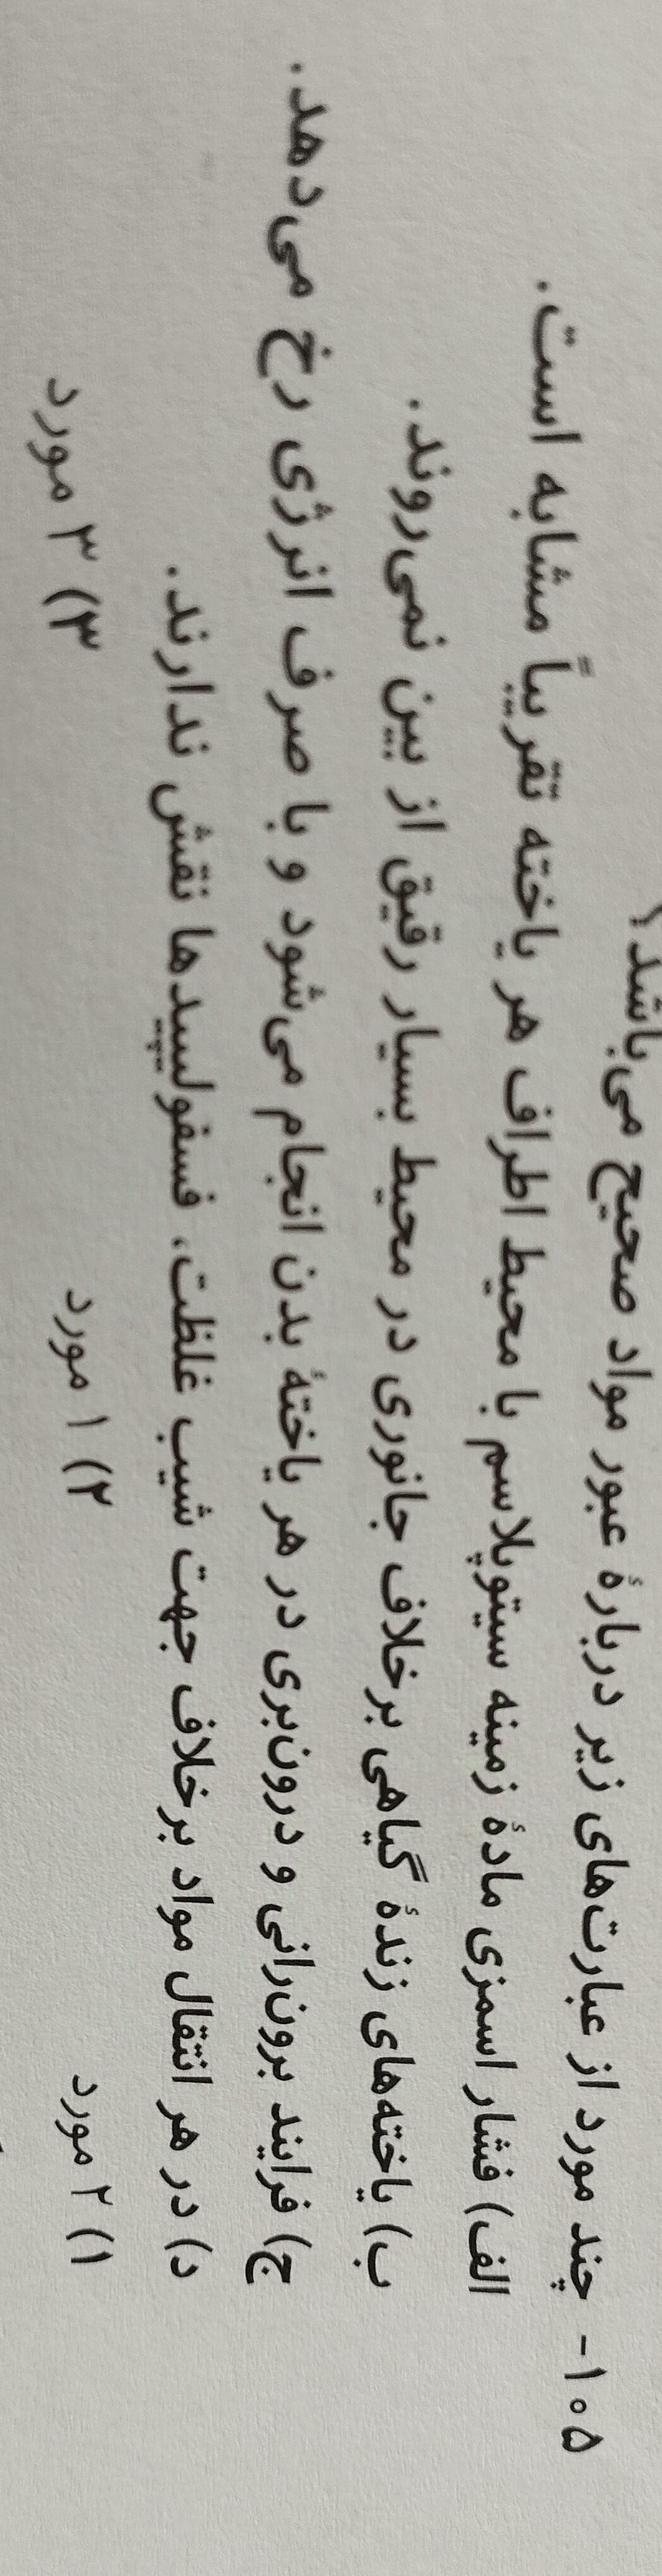 ۱۰۵- چند مورد از عبارت‌های زیر دربارهٔ عبور مواد صحیح می‌باشد؟
الف) فشار اسمزی مادهٔ زمینه سیتوپلاسم با محیط اطراف هر یاخته تقریباً مشابه است.
ب) یاخته‌های زندهٔ گیاهی برخلاف جانوری در محیط بسیار رقیق از بین نمی‌روند.
ج) فرایند برون‌رانی و درون‌بری در هر یاختهٔ بدن انجام می‌شود و با صرف انرژی رخ می‌دهد.
د) در هر انتقال مواد برخلاف جهت شیب غلظت، فسفولیپیدها نقش ندارند.
۱) ۲ مورد ۲) ۱ مورد ۳) ۳ مورد